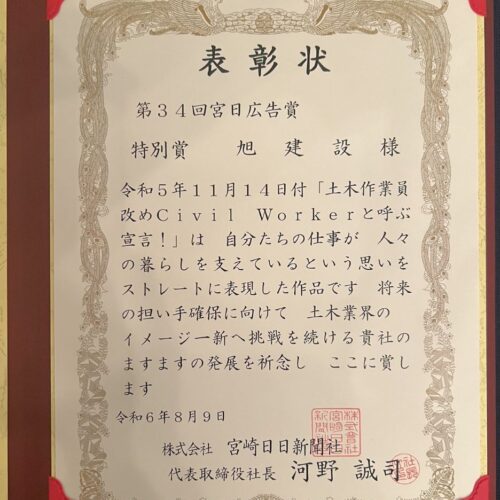 表彰状
第３４回宮日広告賞
特別賞　旭建設様
令和５年１１月１４日付「土木作業員
改めＣｉｖｉｌ　Ｗｏｒｋｅｒと呼ぶ
宣言！」は　自分たちの仕事が　人々
の暮らしを支えているという思いを
ストレートに表現した作品です　将来
の担い手確保に向けて　土木業界の
イメージ一新へ挑戦を続ける貴社の
ますますの発展を祈念し　ここに賞し
ます
令和６年８月９日
株式会社　宮崎日日新聞社
代表取締役社長　河野誠司